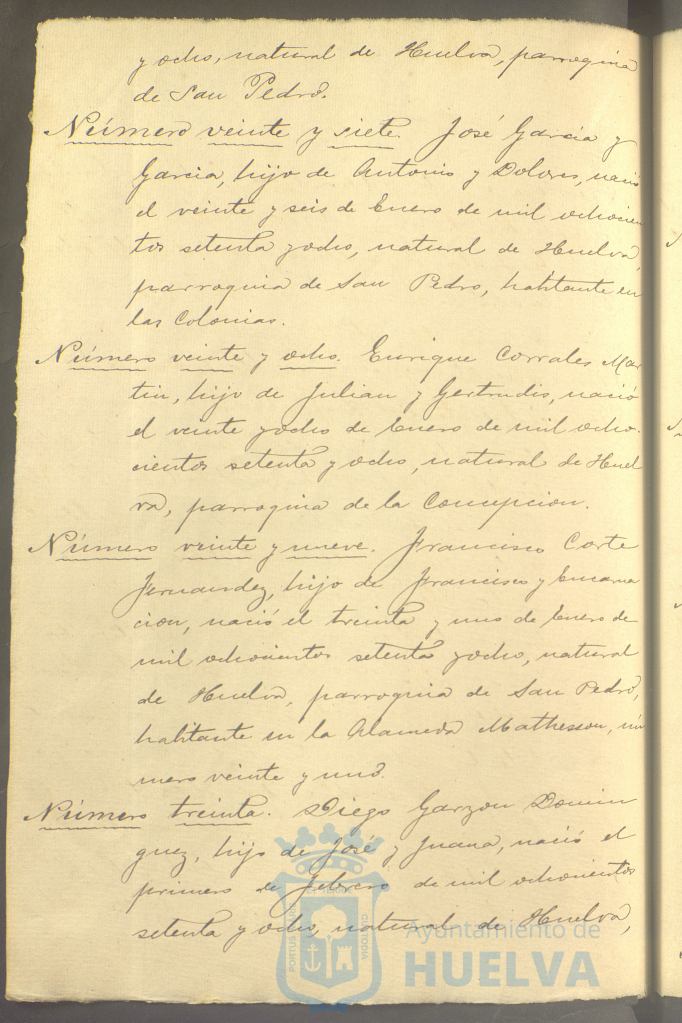 y ocho, natural de Huelva, parroquia
de San Pedro.
Número veinte y siete. José García y
García, hijo de Antonio y Dolores, nació
el veinte y seis de Enero de mil ochocien
tos setenta y ocho, natural de Huelva,
parroquia de San Pedro, habitante en
las Colonias.
Número veinte y ocho. Enrique Corrales Mar
tin, hijo de Julian y Gertrudis, nació
el veinte y ocho de Enero de mil ocho-
cientos setenta y ocho, natural de Huel
va, parroquia de la Concepcion.
Número veinte y nueve. Francisco Corte
Fernandez, hijo de Francisco y Encarna
cion, nació el treinta y uno de Enero de
mil ochocientos setenta y ocho, natural
de Huelva, parroquia de San Pedro,
habitante en la Alameda Mathesson, nú
mero veinte y uno.
Número treinta. Diego Garzon Domin
guez, hijo de José y Juana, nació el
primero de Febrero de mil ochocientos
setenta y ocho, natural de Huelva,
PORTUS MARIS ET TERRAE CUSTODIA
Ayuntamiento de
HUELVA